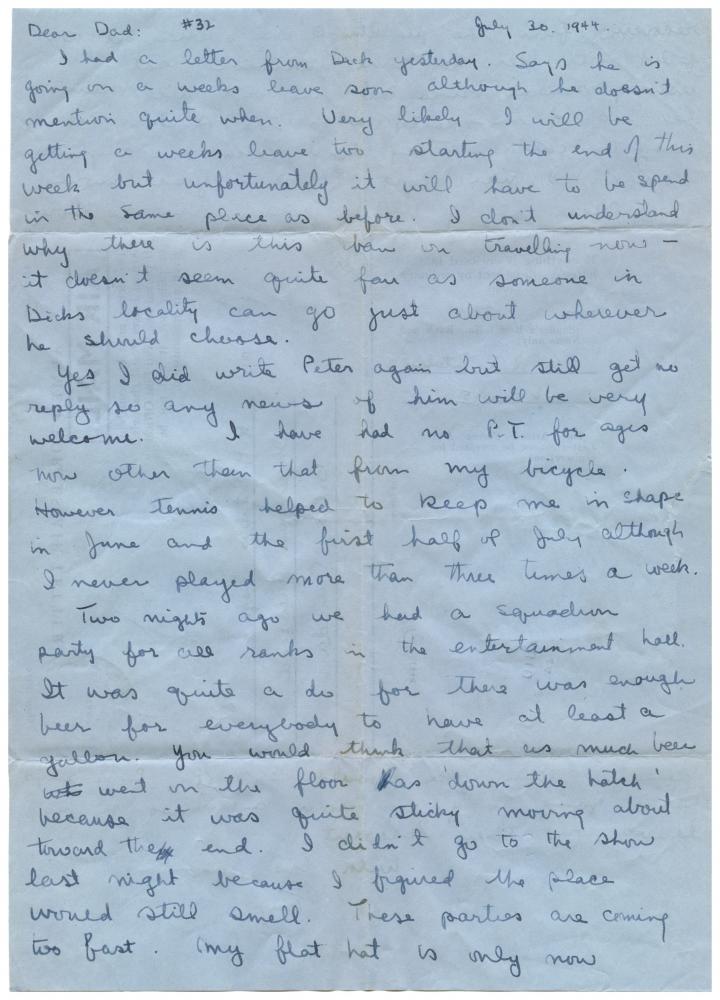 Dear Dad: #32 July 30. 1944.
I had a letter from Dick yesterday. Says he is
going on a weeks leave soon although he doesn't
mention quite when. Very likely I will be
getting a weeks leave too starting the end of this
week but unfortunately it will have to be spend
in the same place as before. I don't understand
why there is this ban on travelling now -
it doesn't seem quite fair as someone in
Dicks locality can go just about wherever
he should choose.
Yes I did write Peter again but still get no
reply so any news of him will be very
welcome. I have had no P.T. for ages
now other than that from my bicycle.
However tennis helped to keep me in shape
in June and the first half of July although
I never played more than three times a week.
Two nights ago we had a squadron
party for all ranks in the entertainment hall.
It was quite a do for there was enough
beer for everybody to have at least a
gallon. You would think that as much beer
went on the floor has 'down the hatch'
because it was quite sticky moving about
toward the end. I didn't go to the show
last night because I figured the place
would still smell. These parties are coming
too fast. (my flat hat is only now